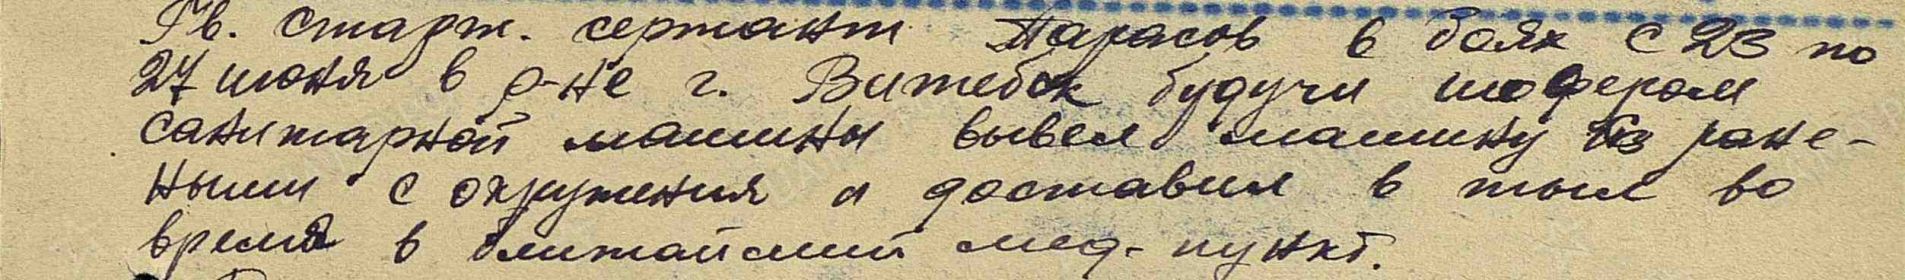 Гв. старш. сержант Тарасов в боях с 23 по
27 июня в р-не г. Витебск будучи шофером
санитарной машины вывел машину из ране-
ными с окружения и доставил в тыл во
время в ближайший мед-пункт.